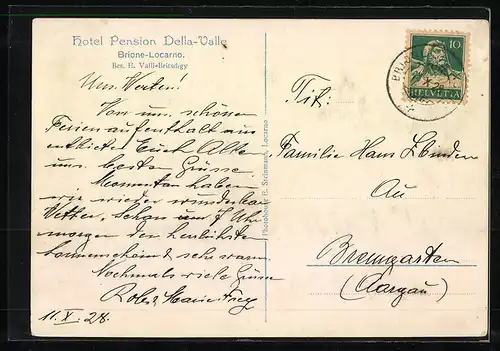 Hotel Pension Della-Valle
Brione-Locarno.
Bes. E. Valli-Britschgy
Uns. Werten!
Von uns. schönen
Ferienaufenthalt aus
entbieten Euch Allen
uns. besten Grüsse.
Momentan haben
wir wieder wunderbar
Wetter, schon um 7 Uhr
morgen den herrlichsten
Sonnenschein & sehr warm.
Nochmals viele Grüsse
Marie
11. X. 28.
Photohaus E. Steinemann, Locarno
10
HELVETIA
Tit.
Familie Hans
Au
Bremgarten
(Aargau)